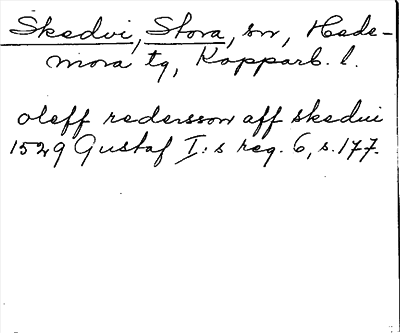 Skedvi, Stora, sn, Hede-
mora tg, Kopparb. l.
oleff redersson aff skedui
1529 Gustaf I:s reg. 6, s. 177.